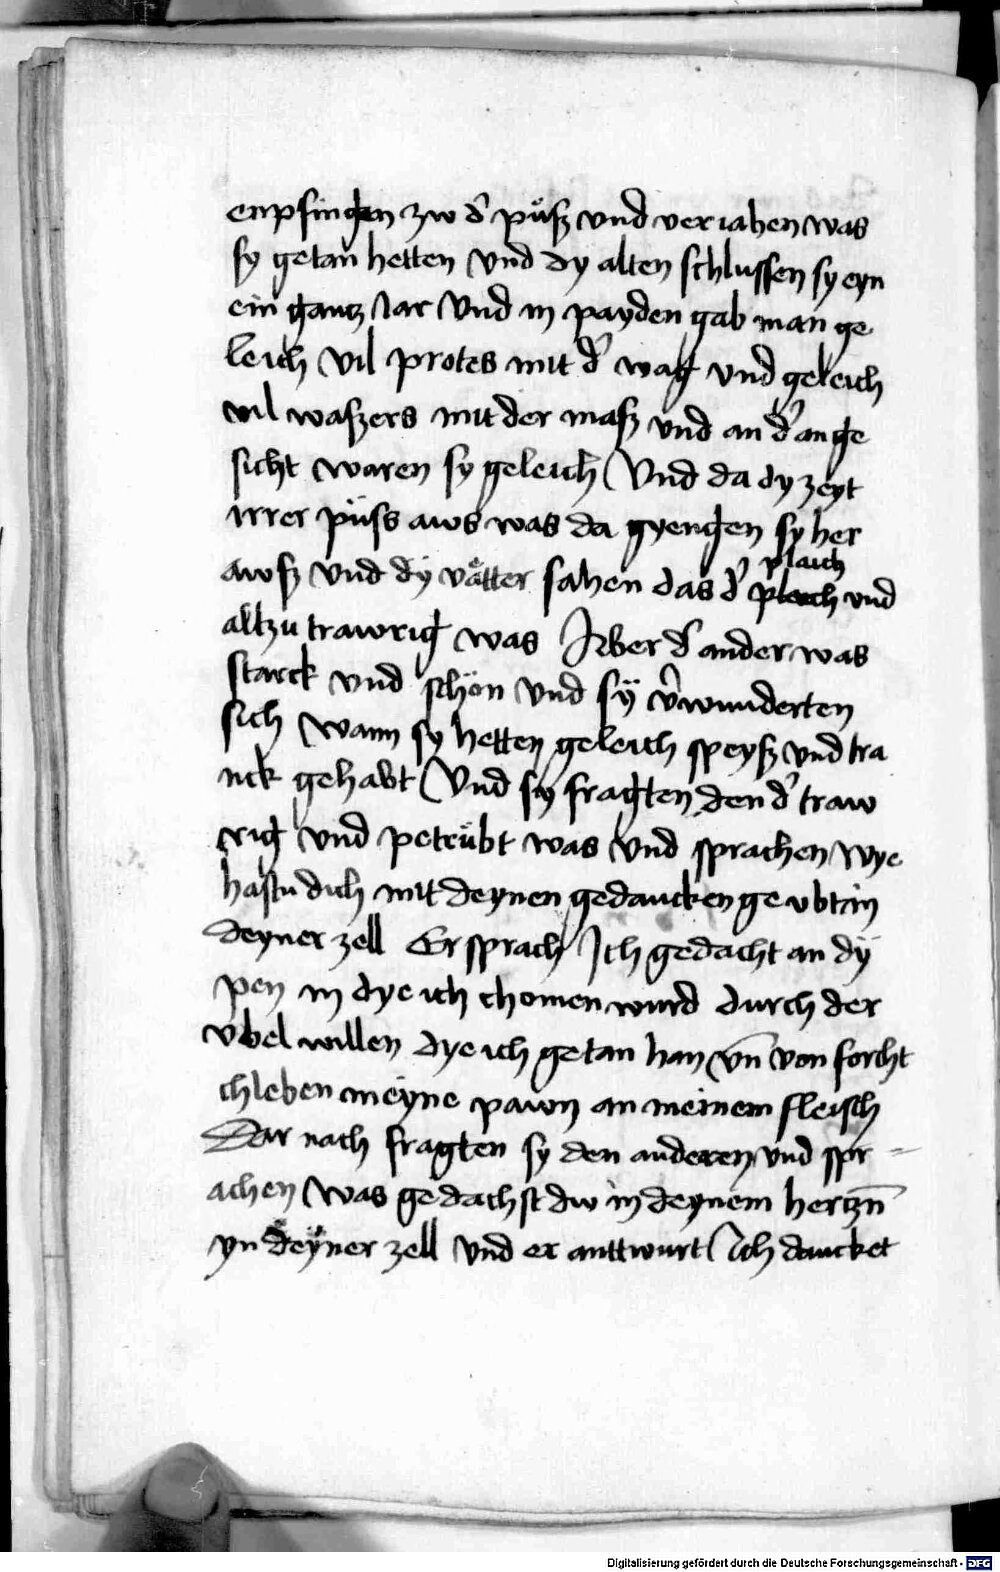 enpfingen zw d' püsz vnd veriahen was
sy getan hetten Vnd dy alten schlussen sy eyn
ein gantz Jar Vnd in payden gab man ge
leich vil protes mit d' wag vnd geleich
vil waszers mit der masz vnd an d' ange
sicht waren sy geleich Vnd da dy zeyt
irrer püss aws was da gyengen sy her
awsz vnd dÿ vätter sahen das d' plaich vnd
altzu trawrig was Aber d' ander was
starck vnd schön vnd sÿ v'wunderten
sich Wann sy hetten geleich speysz vnd tra
nck gehabt Vnd sy fragten den d' traw
rig vnd petrübt was vnd sprachen Wye
hastu dich mit deynen gedancken ge vbt in
deyner zell Er sprach Ich gedacht an dÿ
pen in dye ich chomen wurd durch der
vbel willen dye ich getan han vn̄ von forcht
chleben meyne payn an meinem fleisch
Dar nach fragten sy den anderen vnd spr
achen Was gedachst dw in deynem hertzn̄
yn deyner zell Vnd er anttwurt Ich dancket
Digitalisierung gefördert durch die Deutsche Forschungsgemeinschaft - DFG